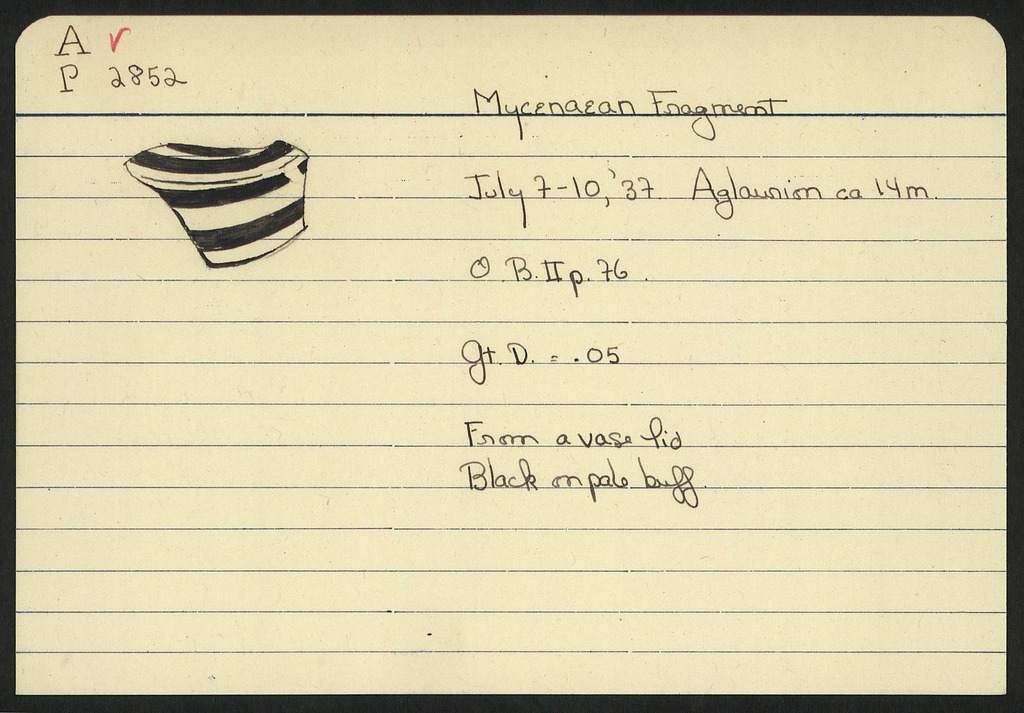 A ✓
P 2852
Mycenaean Fragment
July 7-10, '37 Aglaurion ca 14m.
O B. II p. 76.
Gt. D. = .05
From a vase lid
Black on pale buff.